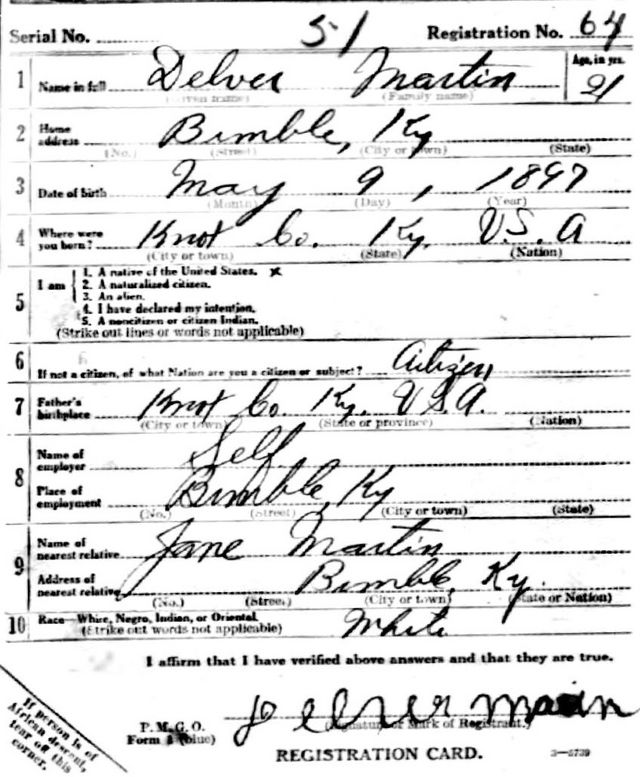 Serial No. 51 Registration No. 64
1 Name in full Delver Martin Age, in yrs. 21
(Given name) (Family name)
2 Home address Bimble, Ky
(No.) (Street) (City or town) (State)
3 Date of birth May 9, 1897
(Month) (Day) (Year)
4 Where were you born? Knot Co. Ky. U.S.A
(City or town) (State) (Nation)
5 I am
1. A native of the United States. x
2. A naturalized citizen.
3. An alien.
4. I have declared my intention.
5. A noncitizen or citizen Indian.
(Strike out lines or words not applicable)
6 If not a citizen, of what Nation are you a citizen or subject? Citizen
7 Father's birthplace Knot Co. Ky. U.S.A.
(City or town) (State or province) (Nation)
8 Name of employer Self
Place of employment Bimble, Ky
(No.) (Street) (City or town) (State)
9 Name of nearest relative Jane Martin
Address of nearest relative Bimble, Ky.
(No.) (Street) (City or town) (State or Nation)
10 Race—White, Negro, Indian, or Oriental. White
(Strike out words not applicable)
I affirm that I have verified above answers and that they are true.
If person is of
African descent,
tear off this
corner.
P. M. G. O.
Form 1 (blue)
Delver
(Signature or Mark of Registrant.)
REGISTRATION CARD. 3—5739